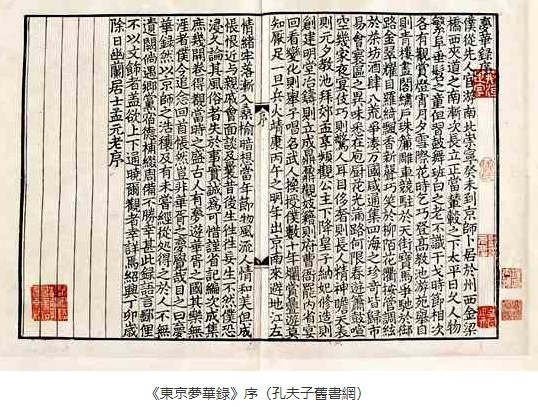 夢華錄序
僕從先人宦游南北崇寧癸未到京師卜居於州西金梁
橋西夾道之南漸次長立正當輦轂之下太平日久人物
繁阜垂髫之童但習鼓舞班白之老不識干戈時節相次
各有觀賞燈宵月夕雪際花時乞巧登高教池游苑舉目
則青樓畫閣繡戶珠簾雕車競駐於天街寶馬爭馳於御
路金翠耀目羅綺飄香新聲巧笑於柳陌花衢按管調絃
於茶坊酒肆八荒爭湊萬國咸通集四海之珍奇皆歸市
易會寰區之異味悉在庖廚花光滿路何限春遊簫鼓喧
空幾家夜宴伎巧則驚人耳目侈奢則長人精神瞻天表
則元夕教池拜郊孟享頻觀公主下降皇子納妃修造則
創建明堂冶鑄則立成鼎鼐觀妓籍則府曹衙罷內省宴
回看變化則舉子唱名武人換授僕數十年爛賞疊遊莫
知厭足一旦兵火靖康丙午之明年出京南來避地江左
序
情緒牢落漸入桑榆暗想當年節物風流人情和美但成
悵恨近與親戚會面談及曩昔後生往往妄生不然僕恐
浸久論其風俗者失於事實誠為可惜謹省記編次成集
庶幾開卷得覩當時之盛古人有夢遊華胥之國其樂無
涯者僕今追念回首悵然豈非華胥之夢覺哉目之曰夢
華錄然以京師之浩穰及有未嘗經從處得之於人不無
遺闕倘遇鄉黨宿德補綴周備不勝幸甚此錄語言鄙俚
不以文飾者蓋欲上下通曉爾觀者幸詳焉紹興丁卯歲
除日幽蘭居士孟元老序
《東京夢華錄》序（孔夫子舊書網）